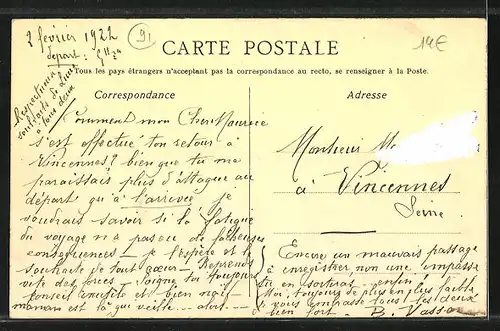 2 fevrier 1922
depart: 5h 1/2
91
14€
CARTE POSTALE
Tous les pays étrangers n'acceptant pas la correspondance au recto, se renseigner à la Poste.
Correspondance
Adresse
Respectueux
souhaits de
à tous deux
Comment mon Cher Maurice
s'est effectué ton retour à
Vincennes? bien que tu me
paraissais plus d'attaque au
départ qu'à l'arrivée je
voudrais savoir si la fatigue
du voyage n'a pas eu de fâcheuses
conséquences — je l'espère et le
souhaite de tout coeur — Reprends
vite des forces — Soigne toi toujours
Conseil et bien
maman est là qui veille
Monsieur M
à Vincennes
Seine
Encore un mauvais passage
à enregistrer non une impasse
tu en sortiras enfin
Moi, toujours de plus en plus faible
Je vous embrasse tous les deux
bien fort — B. Vasson